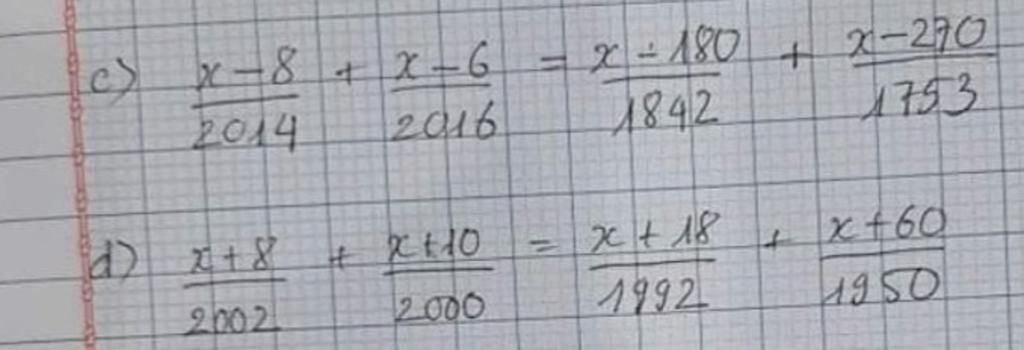 c) x-8/2014 + x-6/2016 = x-180/1842 + x-270/1753
d) x+8/2002 + x+10/2000 = x+18/1992 + x+60/1950